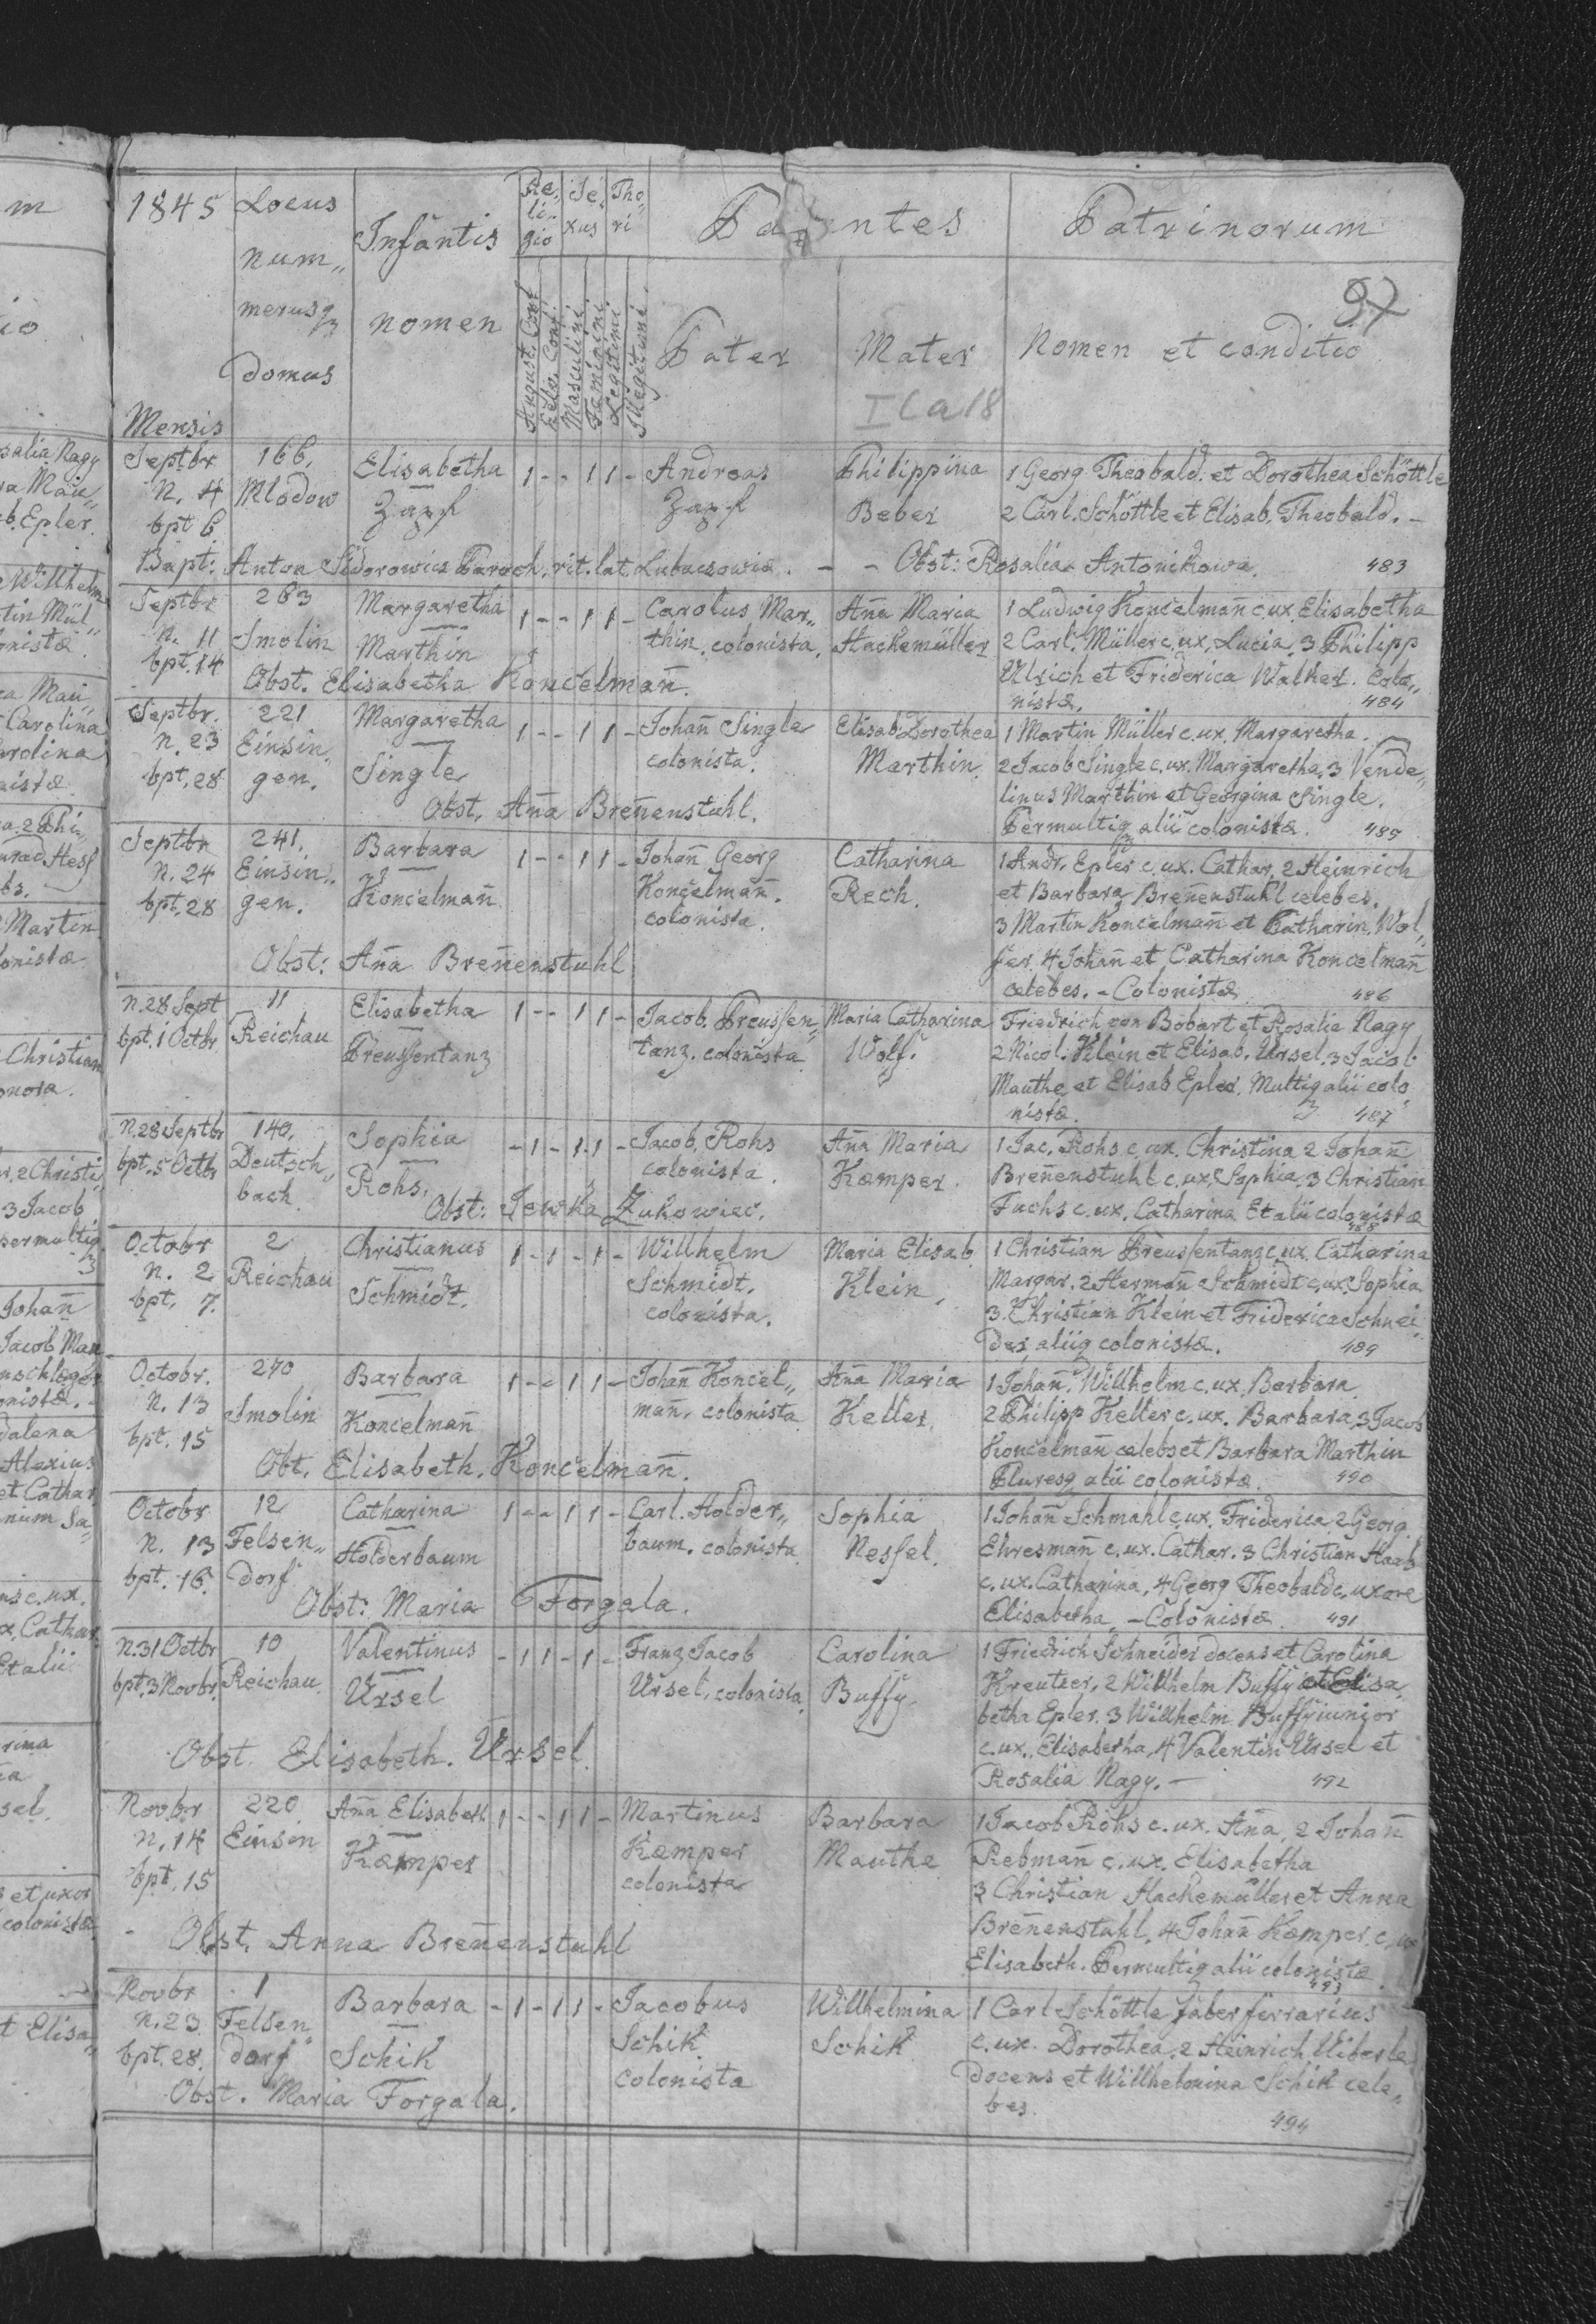 1845 Locus num„ merusq domus
Infantis nomen
Re„ li„ gio
Se„ xus
Tho„ ri
Parentes
Patrinorum
97
August. Conf.
Helv. Conf.
Masculini
Feminini
Legitimi
Illegitimi
Pater
Mater
Nomen et conditio
I C a 18
Mensis
Septbr 166. Elisabetha 1 - - 1 1 - Andreas Philippina 1 Georg Theobald. et Dorothea Schöttle
N. 4 Mlodow Zapf Zapf Beber 2 Carl. Schöttle et Elisab. Theobald. -
bpt 6.
Bapt: Anton Sidorowicz Paroch. rit. lat. Lubaczowiæ. - - Obst: Rosalia Antonikowa. 483
Septbr 263 Margaretha 1 - - 1 1 - Carolus Mar„ Ana Maria 1 Ludwig Koncelman̄ c. ux. Elisabetha
n. 11 Smolin Marthin thin. colonista. Hackemüller 2 Carl. Müller c. ux. Lucia. 3 Philipp
bpt. 14 Ulrich et Friderica Walker. Colo„
Obst. Elisabetha Koncelman̄. nistæ. 484
Septbr. 221 Margaretha 1 - - 1 1 - Johan̄ Single Elisab. Dorothea 1 Martin Müller c. ux. Margaretha.
N. 23 Einsin„ colonista. Marthin. 2 Jacob Single c. ux. Margaretha. 3 Vende„
bpt. 28 gen. Single linus Marthin et Georgina Single.
Obst. An̄a Bren̄enstuhl. Permultiq alii colonistæ. 485
Septbr 241. Barbara 1 - - 1 1 - Johan̄ Georg Catharina 1 Andr. Epler c. ux. Cathar. 2 Heinrich
n. 24 Einsin„ Koncelman̄. Rech. et Barbara Bren̄enstuhl celebes.
bpt. 28 gen. Koncelman̄ colonista. 3 Martin Koncelman̄ et Catharin. Wol„
Obst: An̄a Bren̄enstuhl fer. 4 Johan̄ et Catharina Koncelman̄
celebes. - Colonistæ 486
N. 28 Sept 11 Elisabetha 1 - - 1 1 - Jacob. Preussen„ Maria Catharina Friedrich von Bobart et Rosalie Nagy
bpt. 1 Octbr. Reichau Preussentanz tanz. colonista Wolf. 2 Nicol. Klein et Elisab. Ursel. 3 Jacob
Mauthe et Elisab Epler. Multiq alii colo
nistæ. 487
N. 28 Septbr 140. Sophia - 1 - 1 1 - Jacob. Rohs An̄a Maria 1 Jac. Rohs c. ux. Christina 2 Johan̄
bpt. 5 Octbr Deutsch„ colonista. Kæmper. Bren̄enstuhl c. ux. Sophia. 3 Christian
bach. Rohs. Obst: Jewka Zukowiec. Fuchs c. ux. Catharina Et alii colonistæ
488
Octobr 2 Christianus 1 - 1 - 1 - Willhelm Maria Elisab. 1 Christian Preussentanz c. ux. Catharina
n. 2 Reichau Schmidt. Schmidt. Klein. Margar. 2 Herman̄ Schmidt c. ux. Sophia
bpt. 7. colonista. 3. Christian Klein et Friderica Schnei„
der, aliiq colonistæ. 489
Octobr. 270 Barbara 1 - - 1 1 - Johan̄ Koncel„ An̄a Maria 1 Johan̄. Willhelm c. ux. Barbara.
N. 13 Smolin Koncelman̄ man̄. colonista Keller. 2 Philipp Keller c. ux. Barbara 3 Jacob
bpt. 15 Koncelman̄ celebs et Barbara Marthin
Obt. Elisabeth. Koncelman̄. Pluresq alii colonistæ. 490
Octobr 12 Catharina 1 - - 1 1 - Carl. Holder„ Sophia 1 Johan̄ Schmahl c. ux. Friderica. 2 Georg.
N. 13 Felsen„ Holderbaum baum. colonista Nessel. Ehresman̄ c. ux. Cathar. 3 Christian Haab
bpt. 16. dorf c. ux. Catharina, 4 Georg Theobald c. uxore
Obst: Maria Forgala. Elisabetha. - Colonistæ. 491
N. 31 Octbr 10 Valentinus - 1 1 - 1 - Franz Jacob Carolina 1 Friedrich Schneider docens et Carolina
bpt. 3 Novbr. Reichau. Ursel Ursel, colonista. Buffy. Kreutzer, 2 Willhelm Buffy et Elisa„
betha Epler. 3 Willhelm Buffy iunior
Obst. Elisabeth. Ursel. c. ux. Elisabetha, 4 Valentin Ursel et
Rosalia Nagy. - 492
Novbr 220 An̄a Elisabeth 1 - - 1 1 - Martinus Barbara 1 Jacob Rohs c. ux. An̄a, 2 Johan̄
n. 14 Einsin Kæmper Kæmper Mauthe Rebman̄ c. ux. Elisabetha
bpt. 15 colonista 3 Christian Hackemüller et Anna
Obst. Anna Bren̄enstuhl Bren̄enstuhl. 4 Johan̄ Kæmper. c. ux
Elisabeth. Permultiq alii colonistæ.
493
Novbr 1 Barbara - 1 - 1 1 - Jacobus Willhelmina 1 Carl Schöttle faber ferrarius
n. 23 Felsen„ Schik Schik c. ux. Dorothea. 2 Heinrich
bpt. 28. dorf Schik colonista docens et Willhelmina Schik cele„
Obst. Maria Forgala. bes. 494